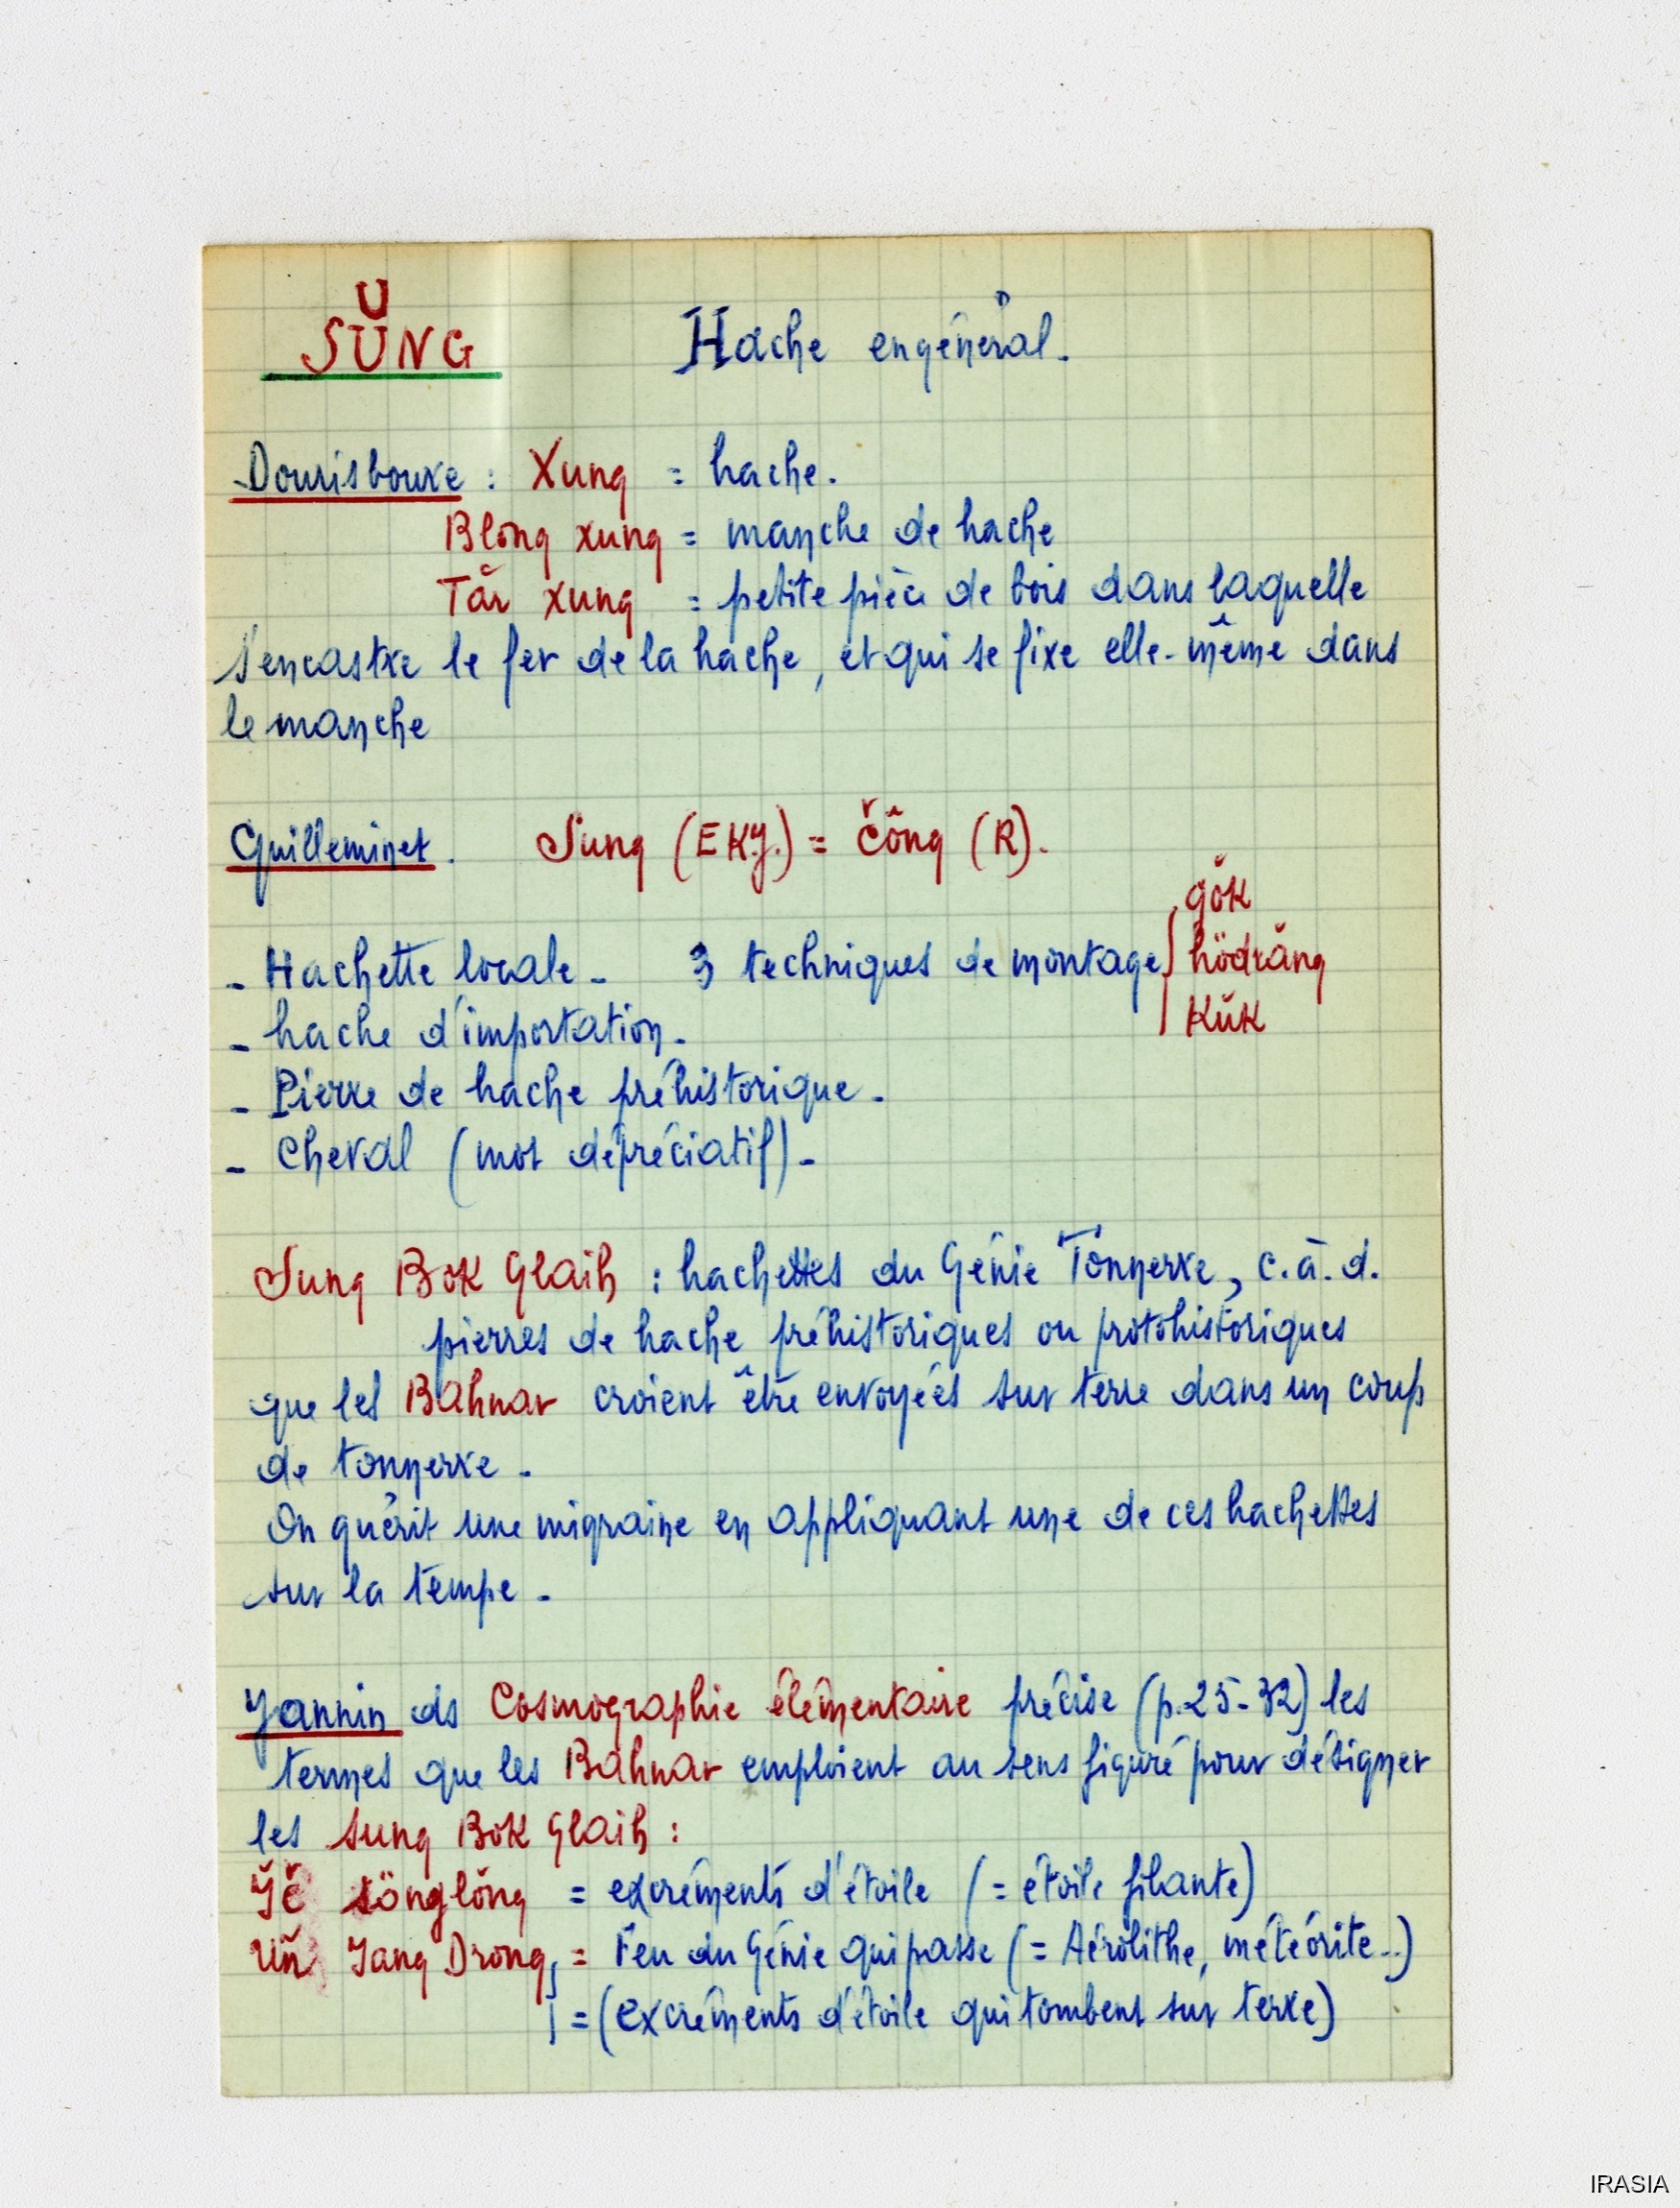 SŬNG Hache en général.
Dourisboure : Xung = hache.
Blong xung = manche de hache
Tăr xung = petite pièce de bois dans laquelle
s'encastre le fer de la hache, et qui se fixe elle-même dans
le manche
Guilleminet. Sung (EKJ.) = čông (R).
gŏk
- Hachette locale - 3 techniques de montage hödrăng
kŭk
- hache d'importation -
- Pierre de hache préhistorique -
- Cheval (mot dépréciatif) -
Sung Bok Glaih : hachettes du Génie Tonnerre, c.à.d.
pierres de hache préhistoriques ou protohistoriques
que les Bahnar croient être envoyées sur terre dans un coup
de tonnerre -
On guérit une migraine en appliquant une de ces hachettes
sur la tempe -
Jannin ds Cosmographie élémentaire précise (p. 25-32) les
termes que les Bahnar emploient au sens figuré pour désigner
les sung Bok Glaih :
sönglŏng = excréments d'étoile (= étoile filante)
Uñ Jang Drong = Feu du Génie qui passe (= Aérolithe, météorite..)
= (excréments d'étoile qui tombent sur terre)
IRASIA